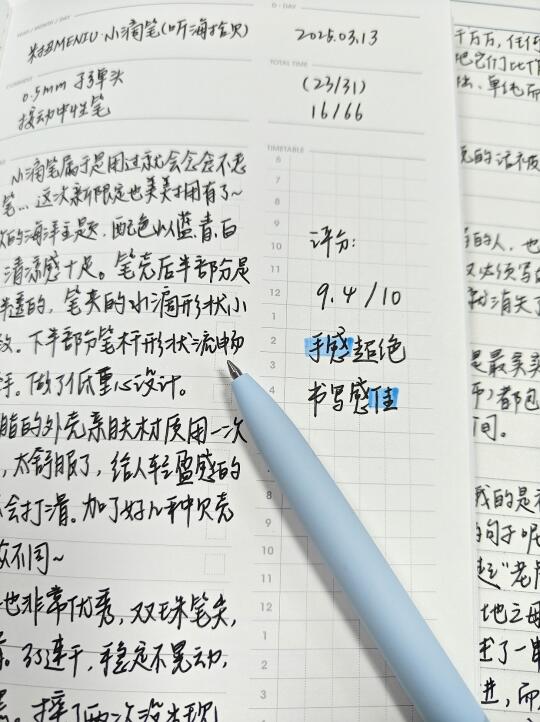 YEAR / MONTH / DAY
米菲MENIU·小滴笔(听海拾贝)
D-DAY
2025.03.13
COMMENT
0.5mm 子弹头
按动中性笔
TOTAL TIME
(23/31)
16/66
TIMETABLE
小滴笔属于是用过就会念念不忘
笔...这次新限定也美美拥有了~
的海洋主题,配色以蓝、青、白
清凉感十足。笔壳后半部分是
半透的,笔夹的水滴形状小
致。下半部分笔杆形状流畅
手。做了低重心设计。
脂的外壳亲肤材质用一次
,太舒服了,给人轻盈感的
会打滑。加了好几种贝壳
不同~
也非常优秀,双珠笔尖,
。书写连干,稳定不晃动,
摔了两次没出现
评分:
9.4/10
手感超绝
书写感佳
6
7
8
9
10
11
12
1
2
3
4
8
9
10
11
12
1
2
3
千万万,任何
把它们比作
单纯而
的话不
的人,也
又必须写
消失了
是最美
都包
间。
我的是
的句子呢
"老
地之
了一
进,而